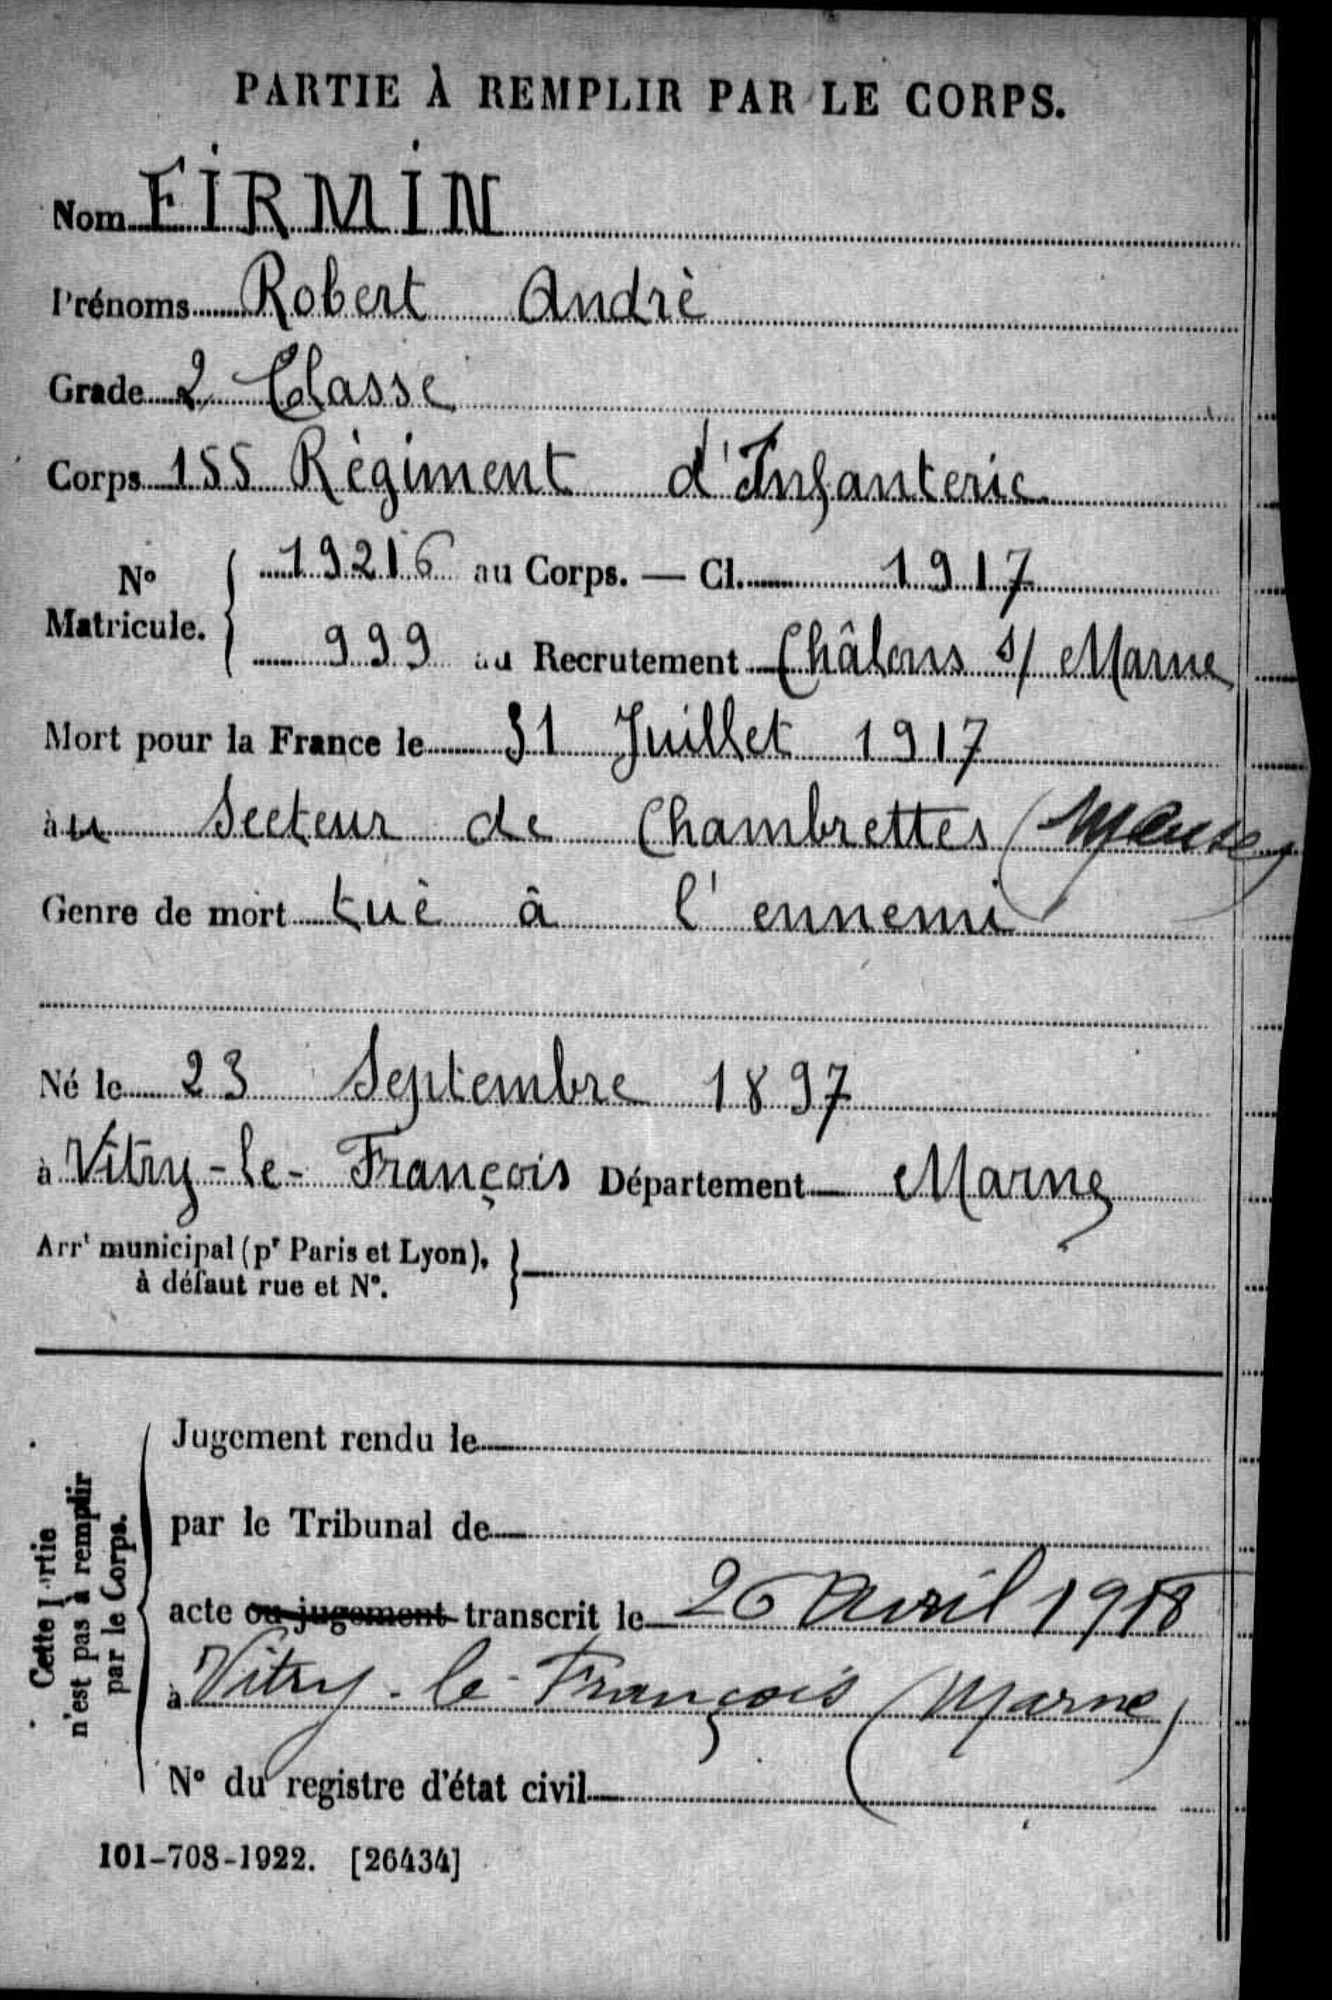 PARTIE À REMPLIR PAR LE CORPS.
Nom FIRMIN
Prénoms Robert Andrè
Grade 2 Classe
Corps 155 Règiment d'Infanterie
N° Matricule. { 19216 au Corps. — Cl. 1917
999 au Recrutement Châlons s/ Marne
Mort pour la France le 31 Juillet 1917
au Secteur de Chambrettes (Meuse)
Genre de mort tuè à l'ennemi
Né le 23 Septembre 1897
à Vitry-le-François Département Marne
Arrt municipal (pr Paris et Lyon),
à défaut rue et N°.
Cette Partie
n'est pas à remplir
par le Corps.
Jugement rendu le
par le Tribunal de
acte ou jugement transcrit le 26 Avril 1918
à Vitry-le-François (Marne)
N° du registre d'état civil
101-708-1922. [26434]